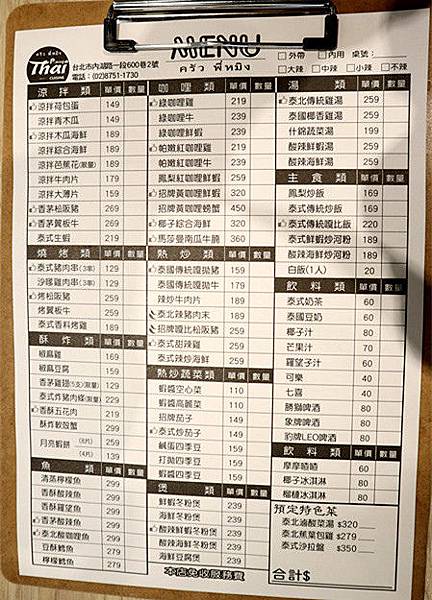 MENU
ครัว พี่หมิง
Thai
CUISINE
台北市內湖路一段600巷2號
電話：(02)8751-1730
□外帶 □內用 桌號：
□大辣 □中辣 □小辣 □不辣
涼拌類 單價 數量
涼拌荷包蛋 149
涼拌青木瓜 149
涼拌木瓜海鮮 189
涼拌綜合海鮮 189
涼拌芭蕉花(限量) 189
涼拌牛肉片 179
涼拌大薄片 159
香茅松阪豬 269
香茅翼板牛 269
泰式生蝦 219
燒烤類 單價 數量
泰式豬肉串(3串) 129
沙嗲雞肉串(3串) 129
烤松阪豬 259
烤翼板牛 259
泰式香料烤雞 259
酥炸類 單價 數量
椒麻雞 169
椒麻豆腐 159
香茅雞翅(5支)(限量) 129
泰式炸豬肉條(限量) 229
香酥五花肉 219
酥炸軟殼蟹 299
月亮蝦餅 (8片) 259
(4片) 139
魚類 單價 數量
清蒸檸檬魚 299
香酥酸辣魚 299
香酥羅望魚 299
香茅酸辣魚 299
泰北酸咖哩魚 299
豆酥鱈魚 279
檸檬鱈魚 279
咖哩類 單價 數量
綠咖哩雞 219
綠咖哩牛 239
綠咖哩鮮蝦 239
帕嫩紅咖哩雞 219
帕嫩紅咖哩牛 239
鳳梨紅咖哩鮮蝦 259
招牌黃咖哩鮮蝦 320
招牌黃咖哩螃蟹 450
椰子綜合海鮮 320
馬莎曼南瓜牛腩 360
熱炒類 單價 數量
泰國傳統嘎拋豬 159
泰國傳統嘎拋牛 179
辣炒牛肉片 189
泰北辣豬肉末 189
招牌嘎比松阪豬 259
泰式甜辣雞 259
泰式辣炒海鮮 259
熱炒蔬菜類 單價 數量
蝦醬空心菜 110
蝦醬高麗菜 110
招牌茄子 149
泰式炒茄子 149
鹹蛋四季豆 159
打拋四季豆 159
蝦醬四季豆 159
煲類 單價 數量
鮮蝦冬粉煲 239
海鮮冬粉煲 239
酸辣鮮蝦冬粉煲 239
酸辣海鮮冬粉煲 239
海鮮豆腐煲 239
本店免收服務費
湯類 單價 數量
泰北傳統雞湯 259
泰國椰香雞湯 259
什錦蔬菜湯 199
酸辣鮮蝦湯 259
酸辣海鮮湯 259
主食類 單價 數量
鳳梨炒飯 169
泰式傳統炒飯 169
泰式傳統嘎比飯 220
泰式鮮蝦炒河粉 189
酸辣鮮蝦炒河粉 189
白飯(1人) 20
飲料類 單價 數量
泰式奶茶 60
泰國豆奶 60
椰子汁 80
芒果汁 70
羅望子汁 60
可樂 40
七喜 40
勝獅啤酒 80
象牌啤酒 80
豹牌LEO啤酒 80
飲料類 單價 數量
摩摩喳喳 60
椰子冰淇淋 80
榴槤冰淇淋 80
預定特色菜
泰北滷酸菜湯 $320
泰北蕉葉包雞 $279
泰式沙拉盤 $350
合計$